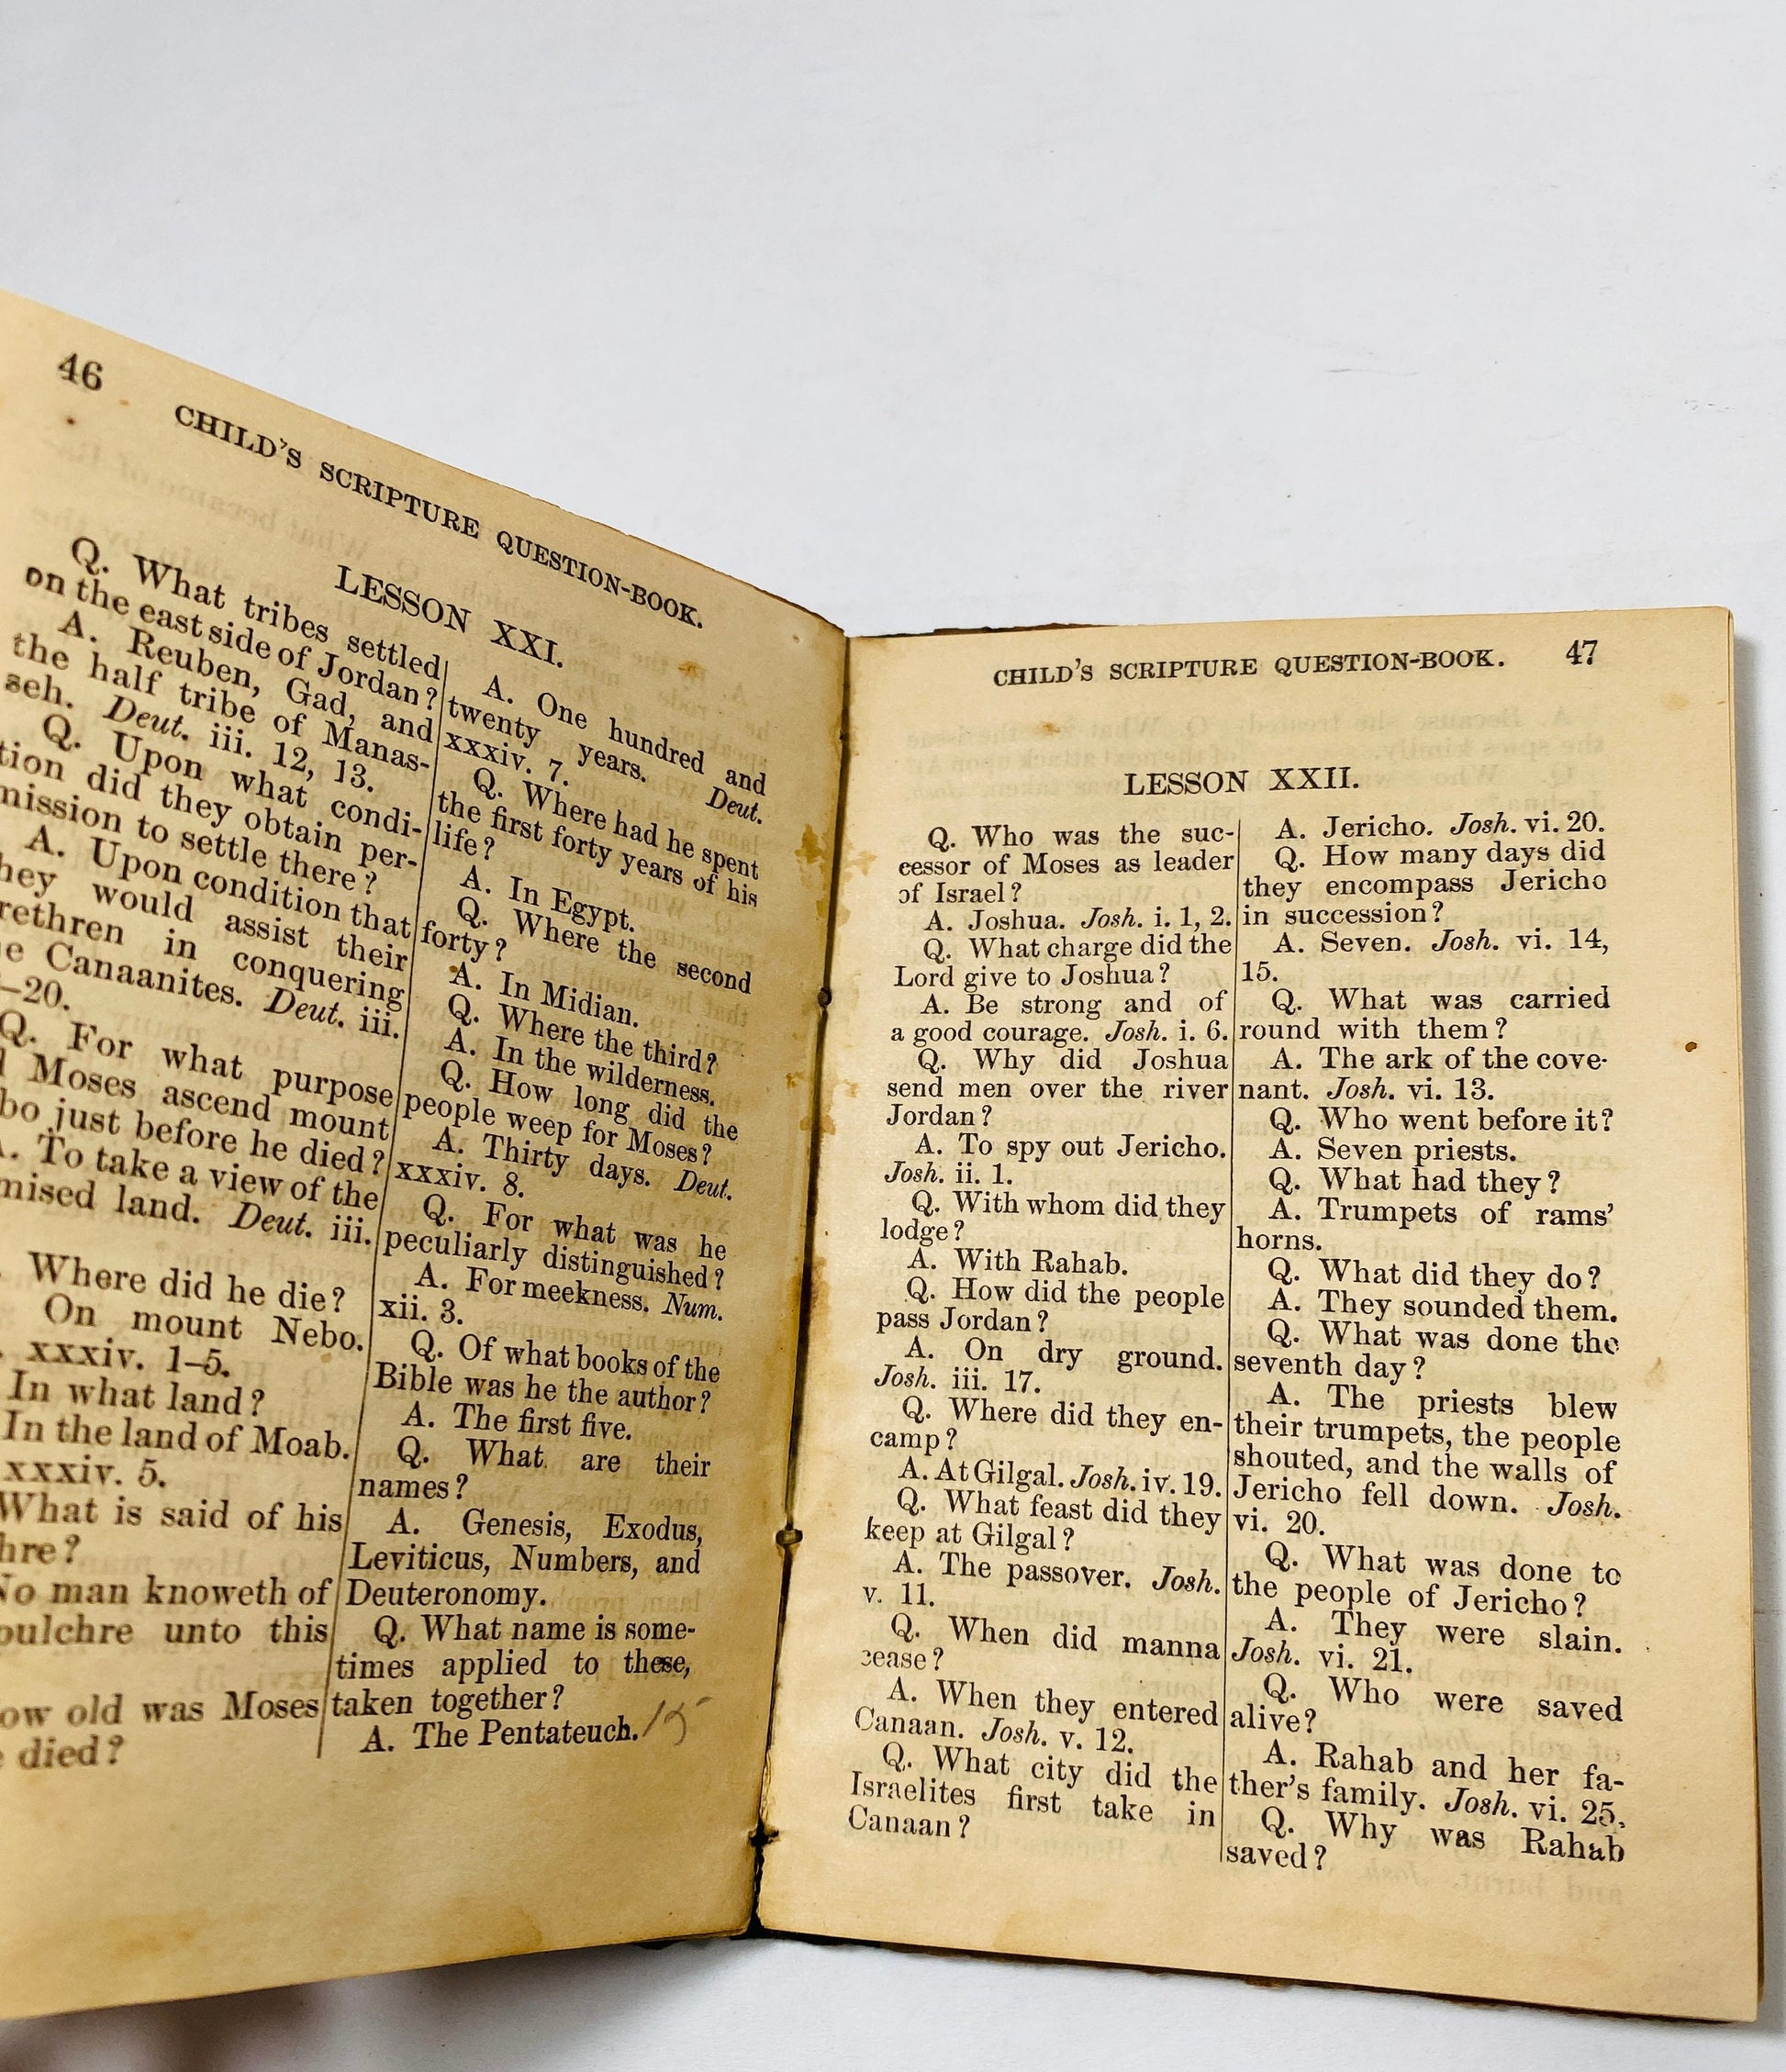 46
CHILD'S SCRIPTURE QUESTION-BOOK.
LESSON XXI.
Q. What tribes settled
on the east side of Jordan?
A. Reuben, Gad, and
the half tribe of Manas-
seh. Deut. iii. 12, 13.
Q. Upon what condi-
tion did they obtain per-
mission to settle there?
A. Upon condition that
they would assist their
rethren in conquering
e Canaanites. Deut. iii.
–20.
Q. For what purpose
Moses ascend mount
bo just before he died?
A. To take a view of the
mised land. Deut. iii.
Where did he die?
On mount Nebo.
xxxiv. 1–5.
In what land?
In the land of Moab.
xxxiv. 5.
What is said of his
hre?
No man knoweth of
pulchre unto this
ow old was Moses
died?
A. One hundred and
twenty years. Deut.
xxxiv. 7.
Q. Where had he spent
the first forty years of his
life?
A. In Egypt.
Q. Where the second
forty?
A. In Midian.
Q. Where the third?
A. In the wilderness.
Q. How long did the
people weep for Moses?
A. Thirty days. Deut.
xxxiv. 8.
Q. For what was he
peculiarly distinguished?
A. For meekness. Num.
xii. 3.
Q. Of what books of the
Bible was he the author?
A. The first five.
Q. What are their
names?
A. Genesis, Exodus,
Leviticus, Numbers, and
Deuteronomy.
Q. What name is some-
times applied to these,
taken together?
A. The Pentateuch.
CHILD'S SCRIPTURE QUESTION-BOOK. 47
LESSON XXII.
Q. Who was the suc-
cessor of Moses as leader
of Israel?
A. Joshua. Josh. i. 1, 2.
Q. What charge did the
Lord give to Joshua?
A. Be strong and of
a good courage. Josh. i. 6.
Q. Why did Joshua
send men over the river
Jordan?
A. To spy out Jericho.
Josh. ii. 1.
Q. With whom did they
lodge?
A. With Rahab.
Q. How did the people
pass Jordan?
A. On dry ground.
Josh. iii. 17.
Q. Where did they en-
camp?
A. At Gilgal. Josh. iv. 19.
Q. What feast did they
keep at Gilgal?
A. The passover. Josh.
v. 11.
Q. When did manna
cease?
A. When they entered
Canaan. Josh. v. 12.
Q. What city did the
Israelites first take in
Canaan?
A. Jericho. Josh. vi. 20.
Q. How many days did
they encompass Jericho
in succession?
A. Seven. Josh. vi. 14,
15.
Q. What was carried
round with them?
A. The ark of the cove-
nant. Josh. vi. 13.
Q. Who went before it?
A. Seven priests.
Q. What had they?
A. Trumpets of rams'
horns.
Q. What did they do?
A. They sounded them.
Q. What was done the
seventh day?
A. The priests blew
their trumpets, the people
shouted, and the walls of
Jericho fell down. Josh.
vi. 20.
Q. What was done to
the people of Jericho?
A. They were slain.
Josh. vi. 21.
Q. Who were saved
alive?
A. Rahab and her fa-
ther's family. Josh. vi. 25.
Q. Why was Rahab
saved?